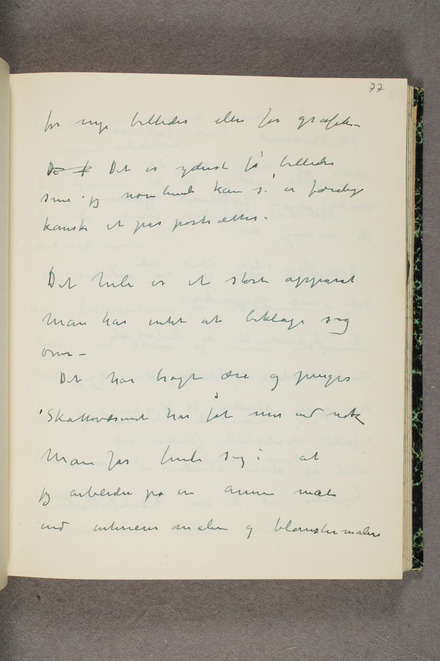 77
for nye billeder eller for grafik –
De f Det er yderst få billeder
som jeg nombrende kan si er færdige
kanske et par portrætter.
Det hele er et stort apparat
Man har intet at beklage sig
over –
Det har bragt ære og penger
Skattevæsenet har fåt mer end nok
Man får finde sig i at
jeg arbeider på en annen måte
end interieur malere og blomstermalere